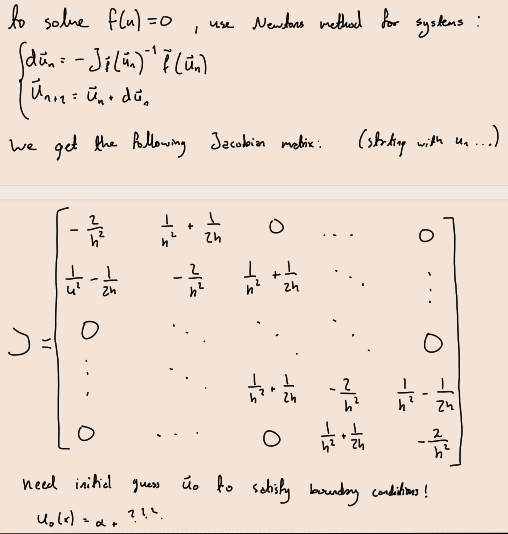 to solve f(u)=0 , use Newtons method for systems :
{ du⃗ₙ = - J_f(u⃗ₙ)⁻¹ f⃗(u⃗ₙ)
u⃗ₙ₊₁ = u⃗ₙ + du⃗ₙ
We get the following Jacobian matrix: (starting with u₁ ...)
J = [ -2/h² 1/h² + 1/2h 0 ... 0
1/h² - 1/2h -2/h² 1/h² + 1/2h ⋱ ⋮
0 ⋱ ⋱ ⋱ 0
⋮ ⋱ 1/h² + 1/2h -2/h² 1/h² - 1/2h
0 ... 0 1/h² + 1/2h -2/h² ]
need initial guess u⃗₀ to satisfy boundary conditions!
u₀(x) = α + ???.